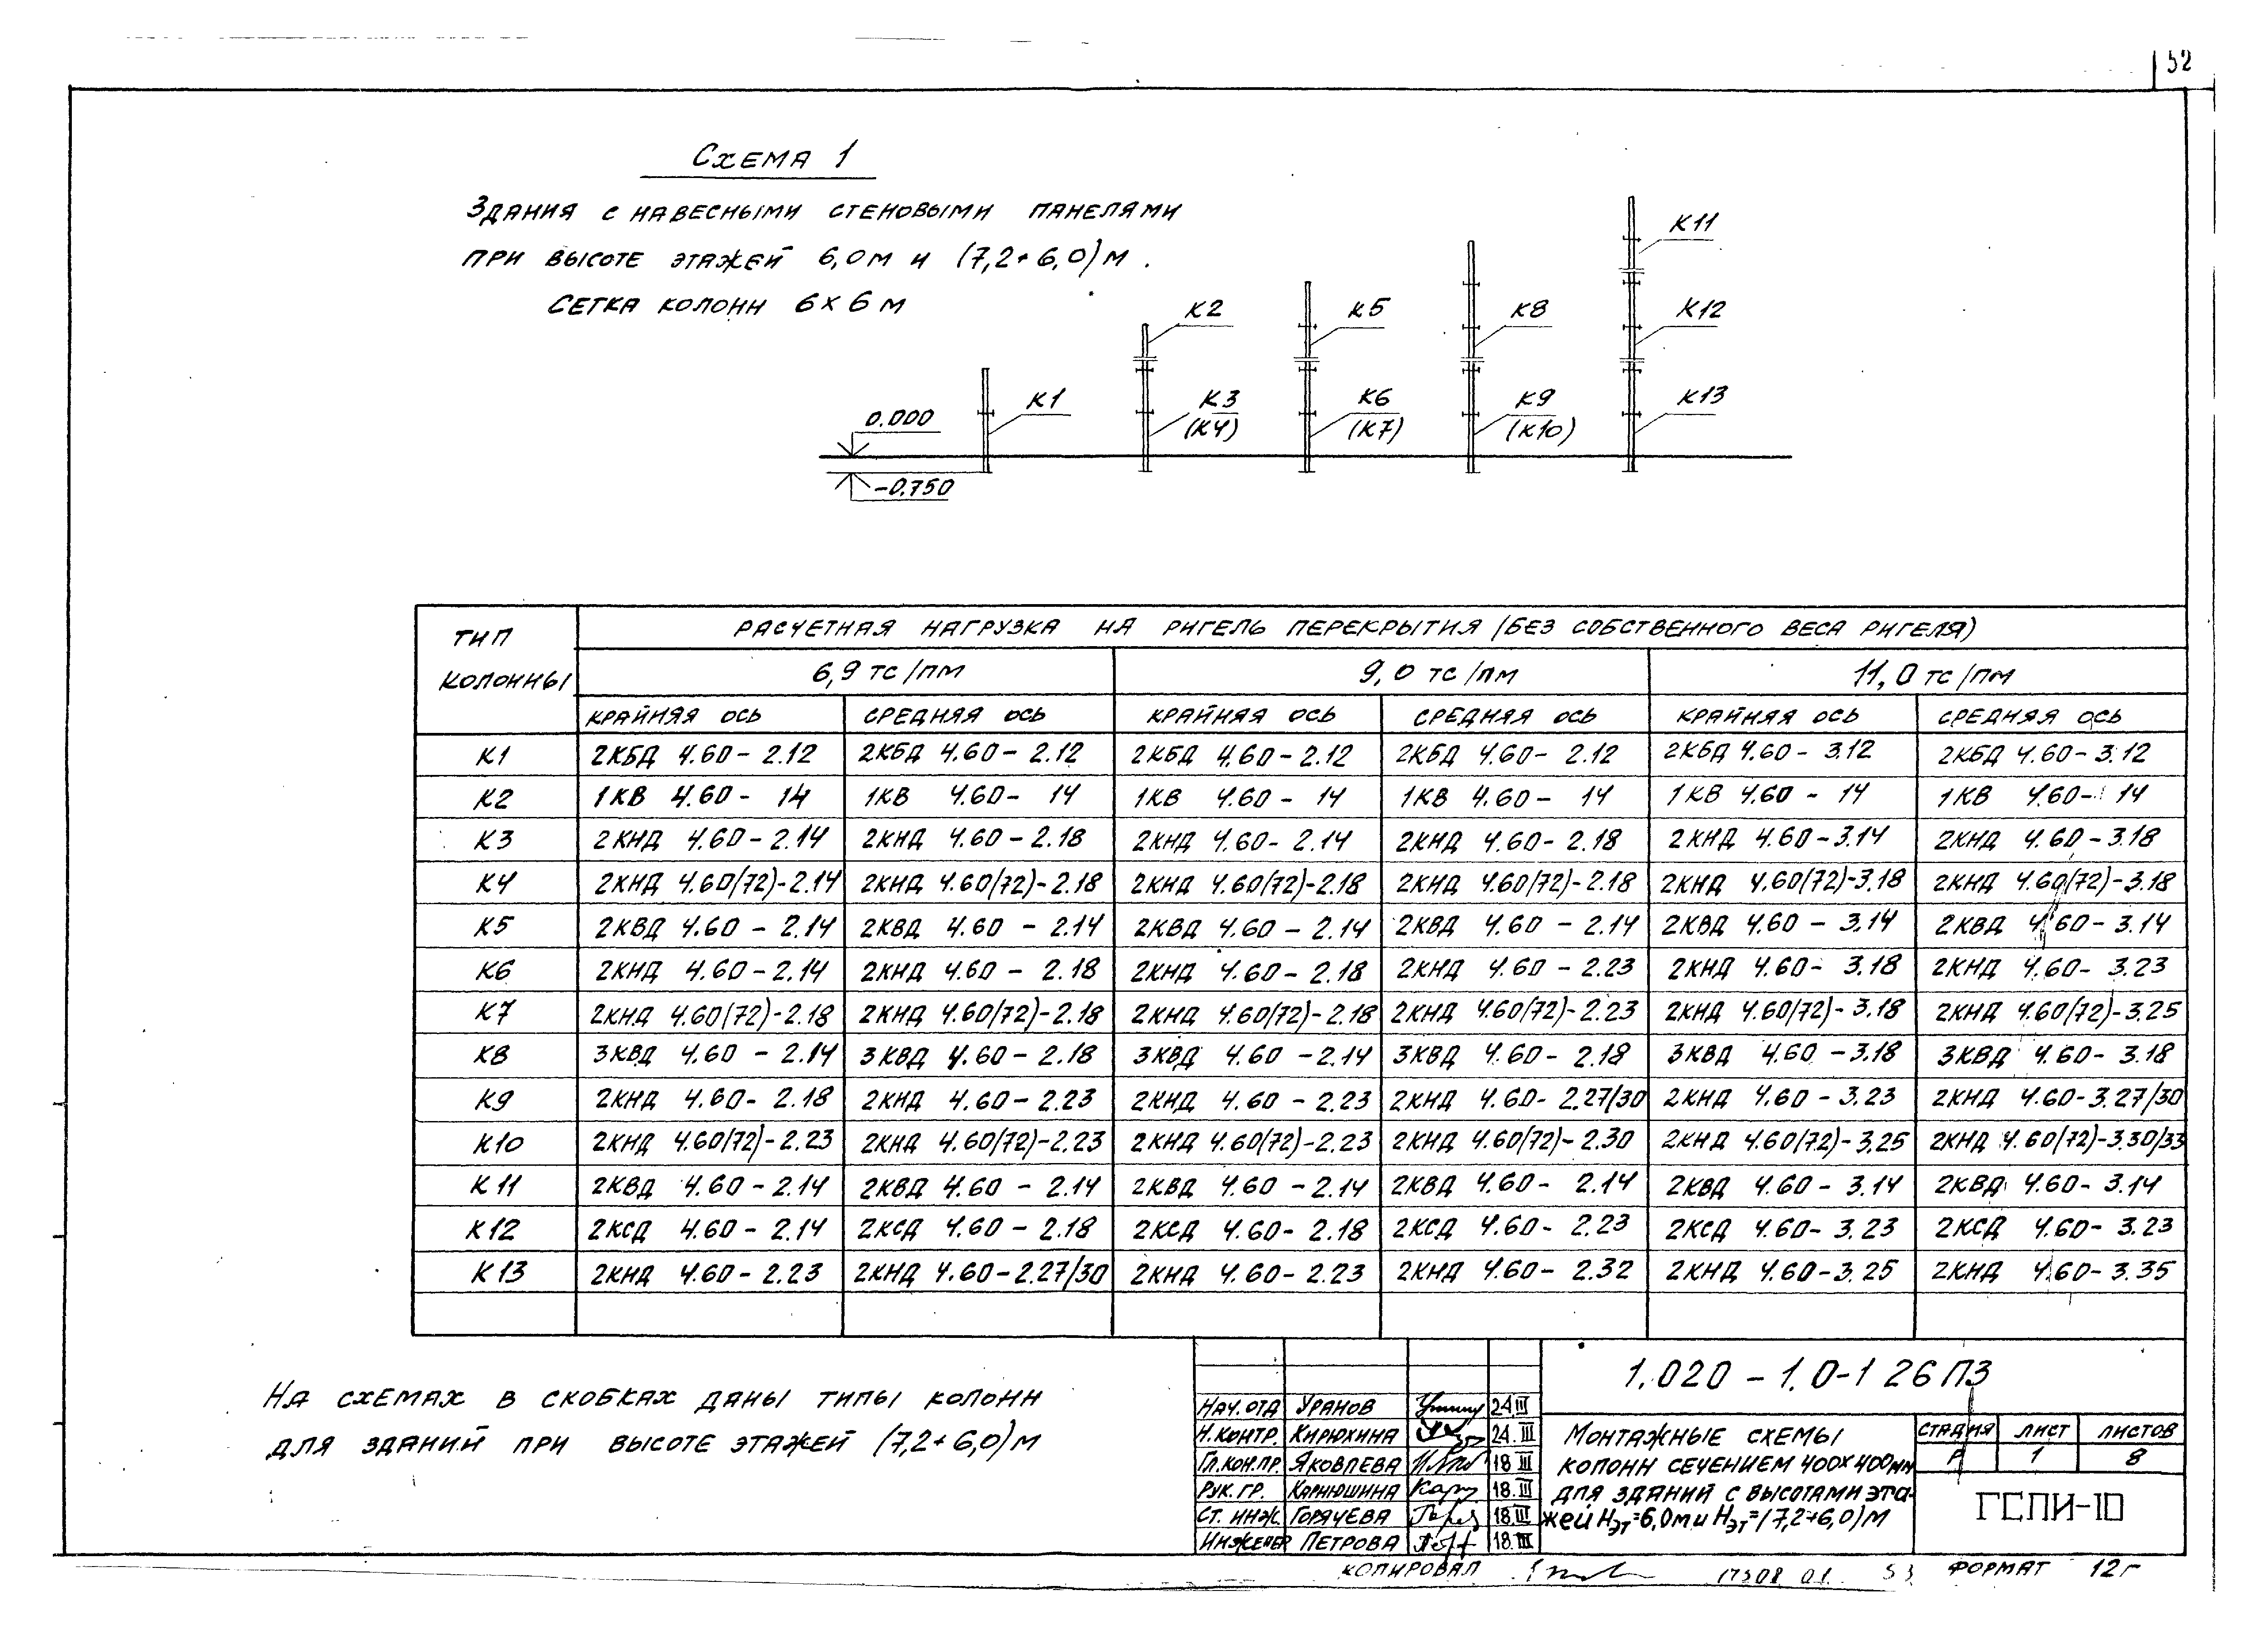 52
Схема 1
Здания с навесными стеновыми панелями
при высоте этажей 6,0м и (7,2+6,0)м.
Сетка колонн 6×6 м
К1
К2
К3
(К4)
К5
К6
(К7)
К8
К9
(К10)
К11
К12
К13
0.000
-0.750
Тип колонны | Расчетная нагрузка на ригель перекрытия (без собственного веса ригеля)
6,9 тс/пм | 9,0 тс/пм | 11,0 тс/пм
крайняя ось | средняя ось | крайняя ось | средняя ось | крайняя ось | средняя ось
К1 | 2КБД 4.60-2.12 | 2КБД 4.60-2.12 | 2КБД 4.60-2.12 | 2КБД 4.60-2.12 | 2КБД 4.60-3.12 | 2КБД 4.60-3.12
К2 | 1КВ 4.60-14 | 1КВ 4.60-14 | 1КВ 4.60-14 | 1КВ 4.60-14 | 1КВ 4.60-14 | 1КВ 4.60-14
К3 | 2КНД 4.60-2.14 | 2КНД 4.60-2.18 | 2КНД 4.60-2.14 | 2КНД 4.60-2.18 | 2КНД 4.60-3.14 | 2КНД 4.60-3.18
К4 | 2КНД 4.60(72)-2.14 | 2КНД 4.60(72)-2.18 | 2КНД 4.60(72)-2.18 | 2КНД 4.60(72)-2.18 | 2КНД 4.60(72)-3.18 | 2КНД 4.60(72)-3.18
К5 | 2КВД 4.60-2.14 | 2КВД 4.60-2.14 | 2КВД 4.60-2.14 | 2КВД 4.60-2.14 | 2КВД 4.60-3.14 | 2КВД 4.60-3.14
К6 | 2КНД 4.60-2.14 | 2КНД 4.60-2.18 | 2КНД 4.60-2.18 | 2КНД 4.60-2.23 | 2КНД 4.60-3.18 | 2КНД 4.60-3.23
К7 | 2КНД 4.60(72)-2.18 | 2КНД 4.60(72)-2.18 | 2КНД 4.60(72)-2.18 | 2КНД 4.60(72)-2.23 | 2КНД 4.60(72)-3.18 | 2КНД 4.60(72)-3.25
К8 | 3КВД 4.60-2.14 | 3КВД 4.60-2.18 | 3КВД 4.60-2.14 | 3КВД 4.60-2.18 | 3КВД 4.60-3.18 | 3КВД 4.60-3.18
К9 | 2КНД 4.60-2.18 | 2КНД 4.60-2.23 | 2КНД 4.60-2.23 | 2КНД 4.60-2.27/30 | 2КНД 4.60-3.23 | 2КНД 4.60-3.27/30
К10 | 2КНД 4.60(72)-2.23 | 2КНД 4.60(72)-2.23 | 2КНД 4.60(72)-2.23 | 2КНД 4.60(72)-2.30 | 2КНД 4.60(72)-3.25 | 2КНД 4.60(72)-3.30/33
К11 | 2КВД 4.60-2.14 | 2КВД 4.60-2.14 | 2КВД 4.60-2.14 | 2КВД 4.60-2.14 | 2КВД 4.60-3.14 | 2КВД 4.60-3.14
К12 | 2КСД 4.60-2.14 | 2КСД 4.60-2.18 | 2КСД 4.60-2.18 | 2КСД 4.60-2.23 | 2КСД 4.60-3.23 | 2КСД 4.60-3.23
К13 | 2КНД 4.60-2.23 | 2КНД 4.60-2.27/30 | 2КНД 4.60-2.23 | 2КНД 4.60-2.32 | 2КНД 4.60-3.25 | 2КНД 4.60-3.35
На схемах в скобках даны типы колонн
для зданий при высоте этажей (7,2+6,0)м
Нач.отд Уранов 24.III
Н.контр. Кирюхина 24.III
Гл.кон.пр. Яковлева 18 III
Рук. гр. Карнюшина 18.III
Ст. инж. Горячева 18 III
Инженер Петрова 18.III
1.020-1.0-1 26ПЗ
Монтажные схемы
колонн сечением 400х400мм
для зданий с высотами эта-
жей Нэт=6,0м и Нэт=(7,2+6,0)м
стадия | лист | листов
Р | 1 | 8
ГСПИ-10
Копировал
17308 01 53
Формат 12г